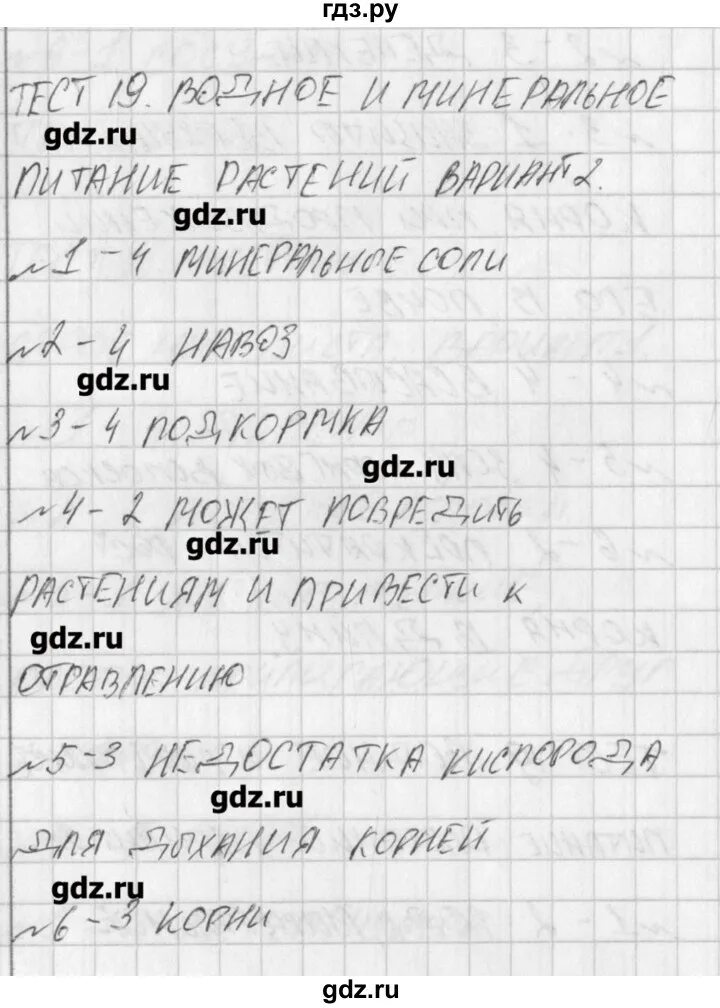 гдз.ру
ТЕСТ 19. ВОДНОЕ И МИНЕРАЛЬНОЕ
gdz.ru
ПИТАНИЕ РАСТЕНИЙ ВАРИАНТ 2.
gdz.ru
№1 - 4 МИНЕРАЛЬНЫЕ СОЛИ
№2 - 4 НАВОЗ
gdz.ru
№3 - 4 ПОДКОРМКА
gdz.ru
№4 - 2 МОЖЕТ ПОВРЕДИТЬ
gdz.ru
РАСТЕНИЯМ И ПРИВЕСТИ К
gdz.ru
ОТРАВЛЕНИЮ
№5 - 3 НЕДОСТАТКА КИСЛОРОДА
gdz.ru
ДЛЯ ДЫХАНИЯ КОРНЕЙ
gdz.ru
№6 - 3 КОРНИ
gdz.ru